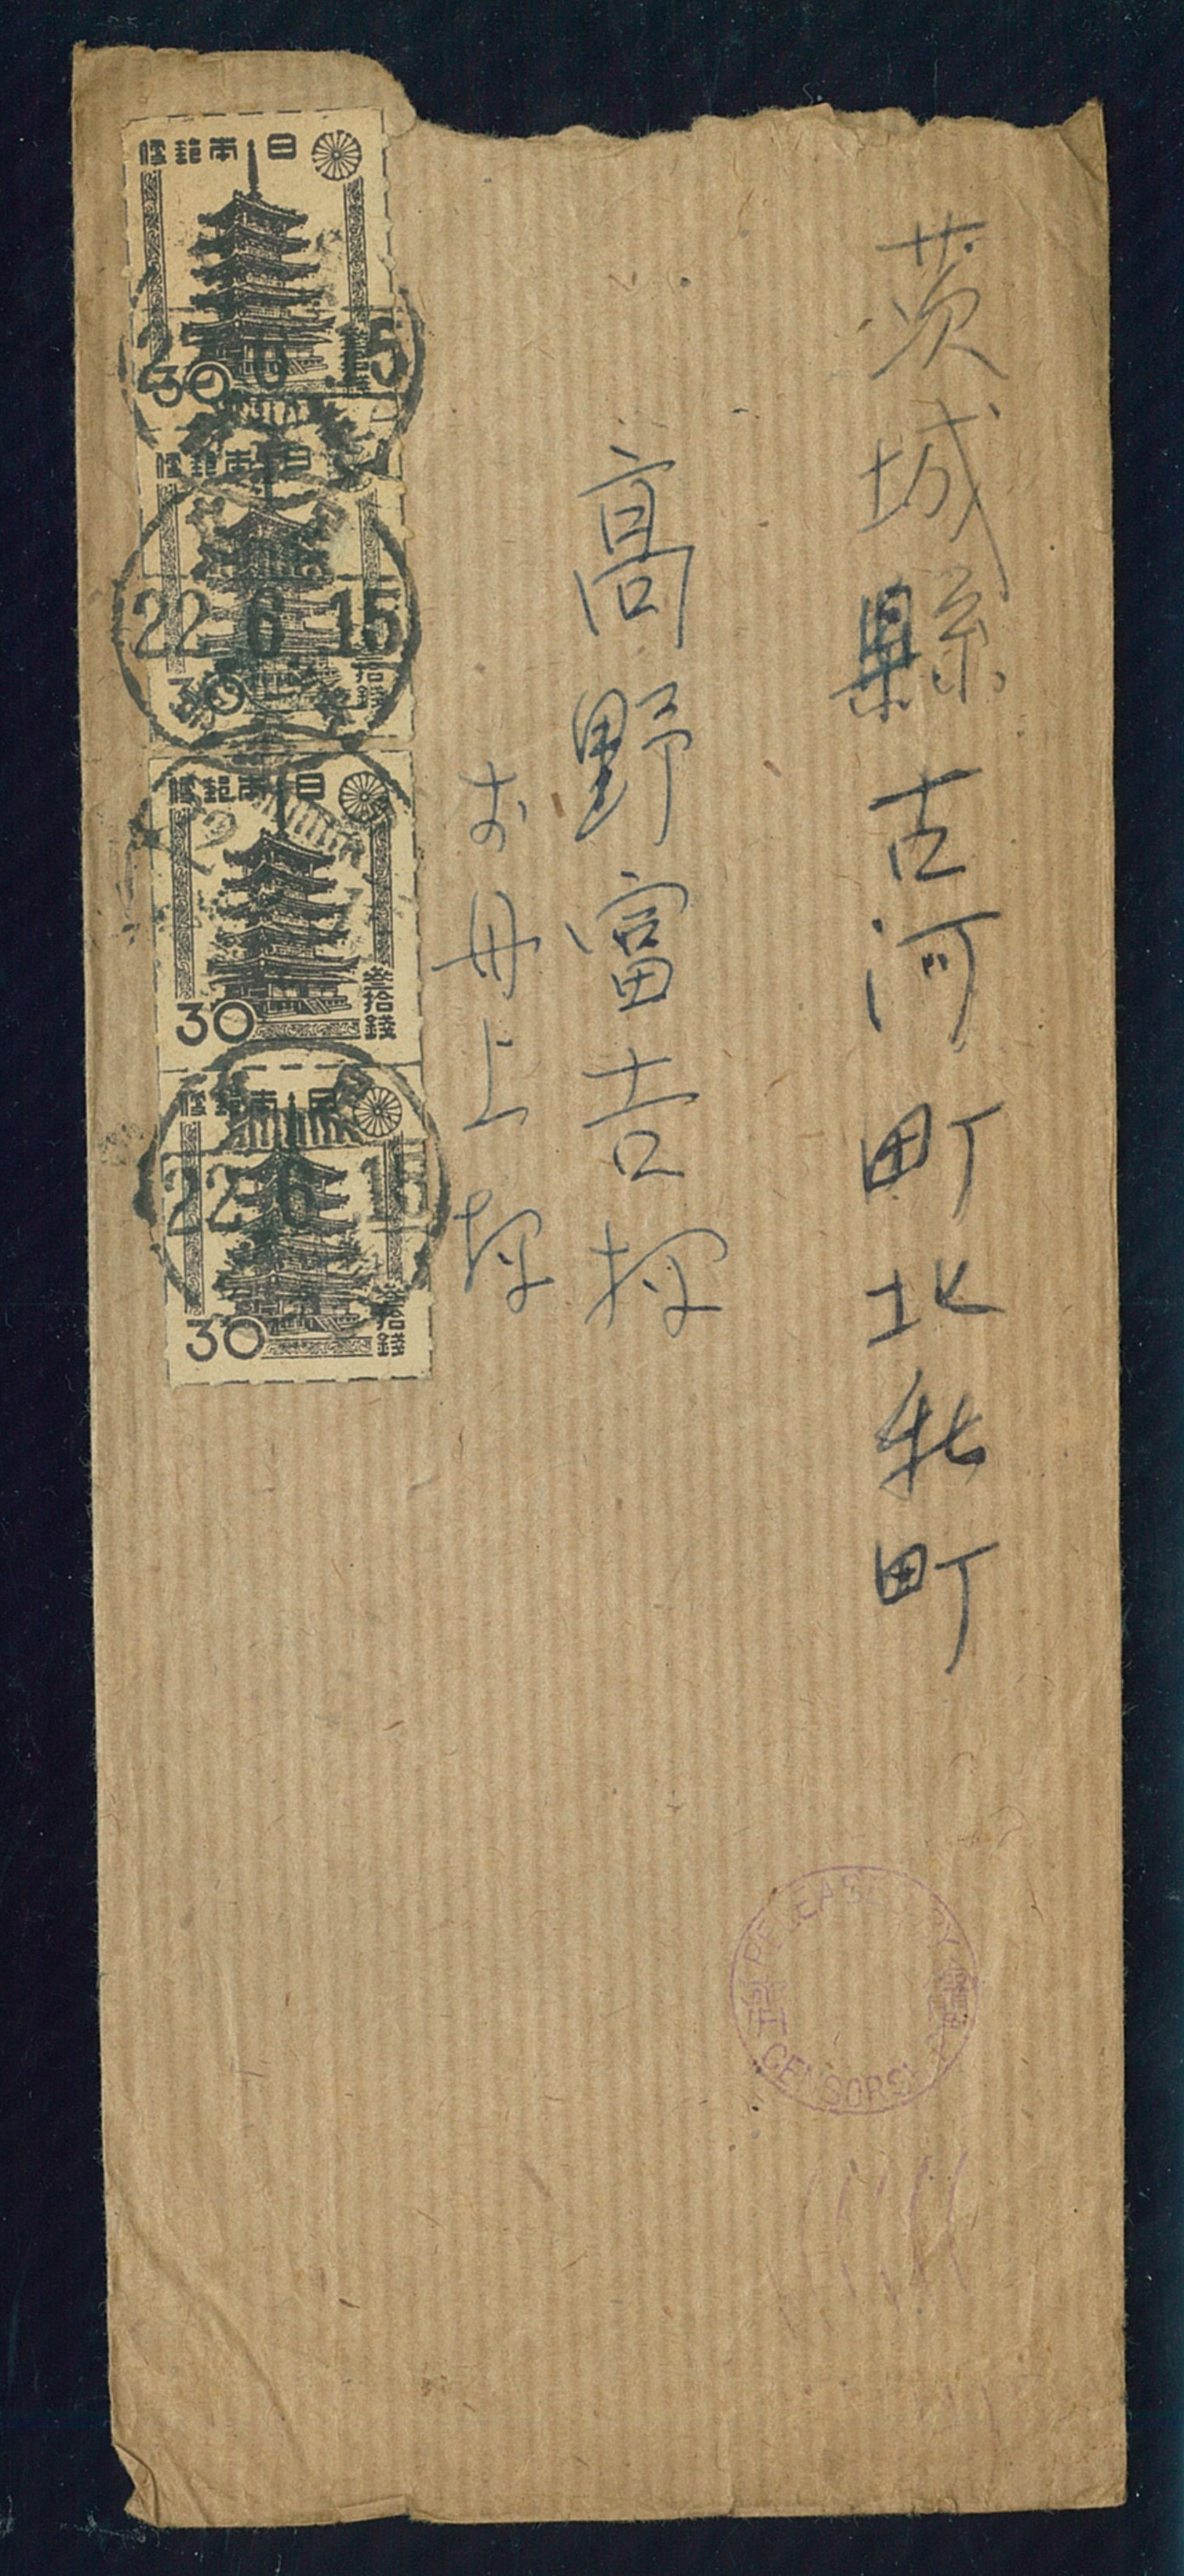 茨城縣古河町北新町
高野富吉様
お母上様
日本郵便
30
参拾錢
22 6 15
日本郵便
30
拾錢
22 6 15
日本郵便
30
参拾錢
日本郵便
30
参拾錢
22 6 15
RELEASED BY
CENSORSHIP